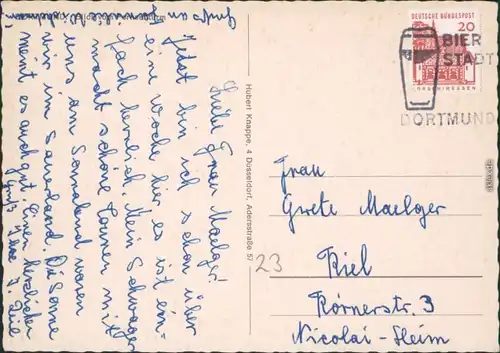 Liebe Frau Maelger!
Jetzt bin ich schon über
eine Woche hier, es ist ein-
fach herrlich. Mein Schwager
macht schöne Touren mit
uns am Sonnabend waren
wir im Sauerland. Die Sonne
meint es auch gut. Einen herzlichen
Gruß Ihre
Hubert Knappe, 4 Düsseldorf, Adersstraße 57
DEUTSCHE BUNDESPOST
20
LORSCH/HESSEN
BIER
STADT
DORTMUND
Frau
Grete Maelger
23 Kiel
Körnerstr. 3
Nicolai-Heim